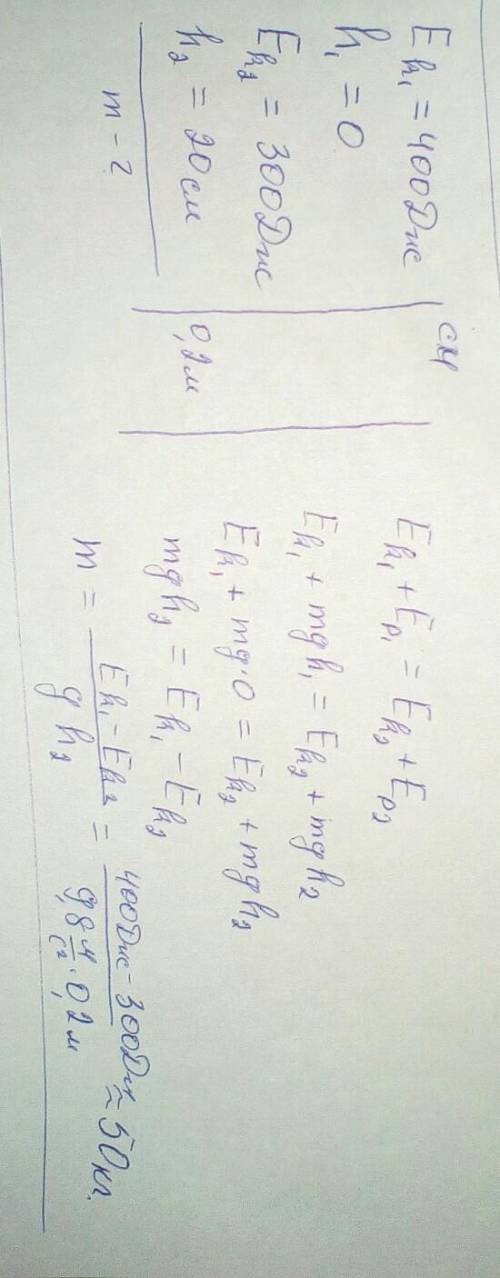 E_k₁ = 400Дж
h₁ = 0
E_k₂ = 300Дж
h₂ = 20 см
m - ?
СИ
0,2 м
E_k₁ + E_p₁ = E_k₂ + E_p₂
E_k₁ + mgh₁ = E_k₂ + mgh₂
E_k₁ + mg·0 = E_k₂ + mgh₂
mgh₂ = E_k₁ - E_k₂
m = (E_k₁ - E_k₂)/(gh₂) = (400Дж - 300Дж)/(9,8 м/с² · 0,2 м) ≈ 50 кг.